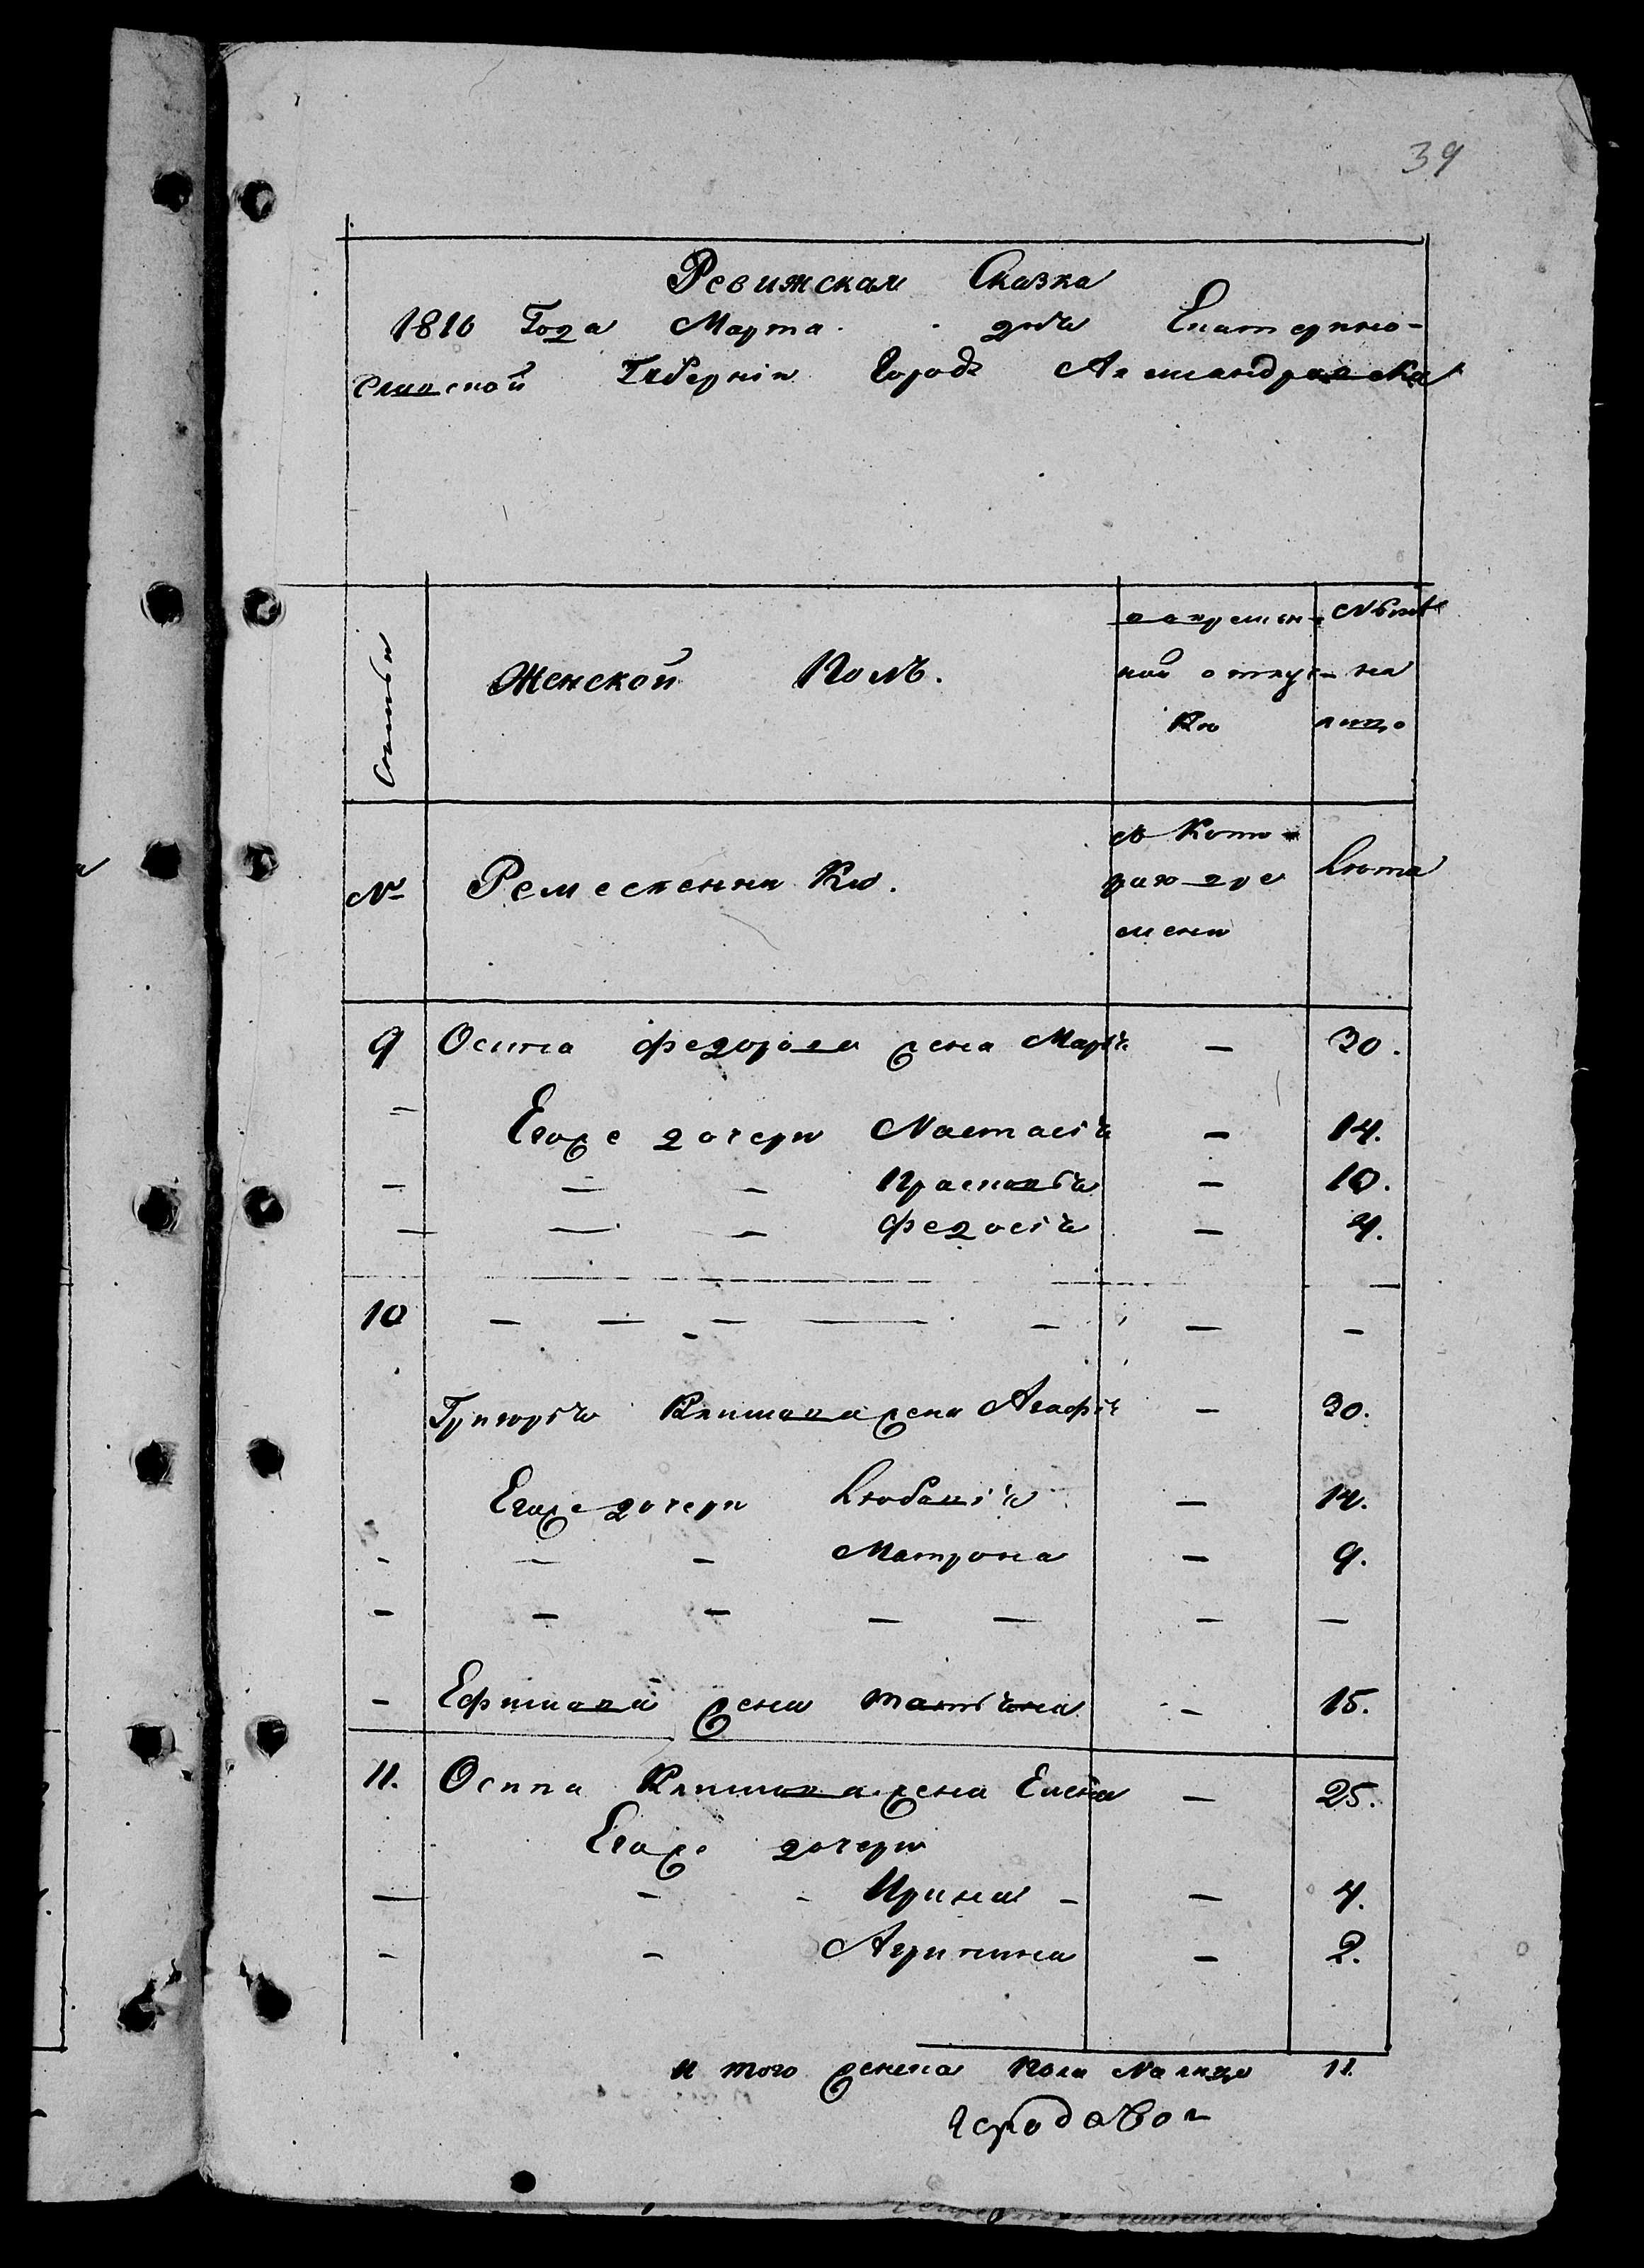 39
Ревижская Сказка
1816 Года Марта дня Екатерино-
славской Губерніи Города Александровска
Семьи
Женской Полъ.
во времен- Нынѣ
ной отлуч- на
ки лицо
№ Ремесленники.
съ кото-
раго вре
мени
Лѣта
9 Осипа Федорова жена Марія — 30.
— Егоже дочери Настасія — 14.
— — — Прасковія — 10.
— — — Федосія — 4.
10 — — — — — — —
Григорія Климова жена Агафія — 30.
Егоже дочери Любавія — 14.
- — - Матрона — 9.
— — — — — — —
- Ефимова жена Татіяна - 15.
11. Осипа Климова жена Елена — 25.
Егоже дочери
— - - Ирина - — 4.
- - Агрипина — 2.
и того женска пола Налицо 11.